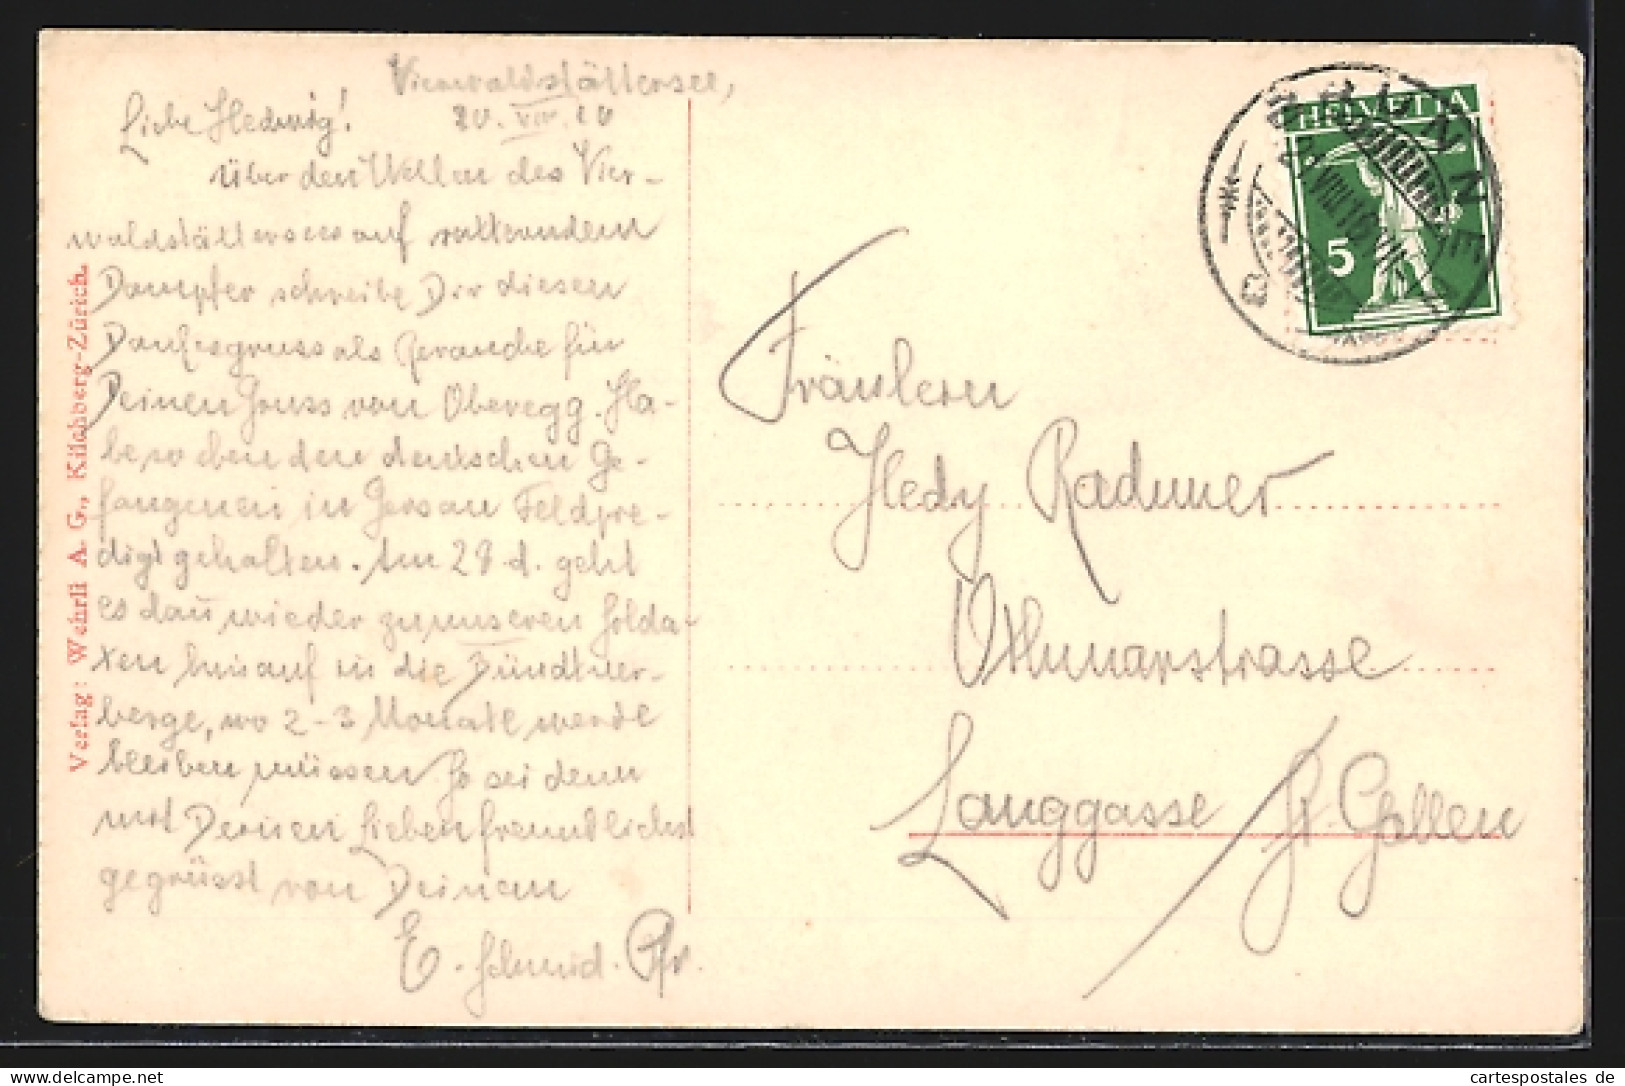 Vierwaldstättersee,
20. VIII. 16
Liebe Hedwig!
Über den Wellen des Vier-
waldstättersees auf ratterndem
Dampfer schreibe Dir diesen
Dankesgruss als Revanche für
Deinen Gruss von Oberegg. Ha-
be so eben den deutschen Ge-
fangenen in Gersau Feldpre-
digt gehalten. Am 28. d. geht
es dan̄ wieder zu unseren Solda-
ten hinauf in die Bündtner-
berge, wo 2-3 Monate werde
bleiben müssen. So sei denn
mit Deinen Lieben freundlichst
gegrüsst von Deinem
E. Schmid. Pfr.
Verlag: Wehrli A. G., Kilchberg-Zürich.
HELVETIA
5
BRUNNEN
VIII.16
Fräulein
Hedy Radumer
Othmarstrasse
Langgasse St. Gallen
cartespostales de